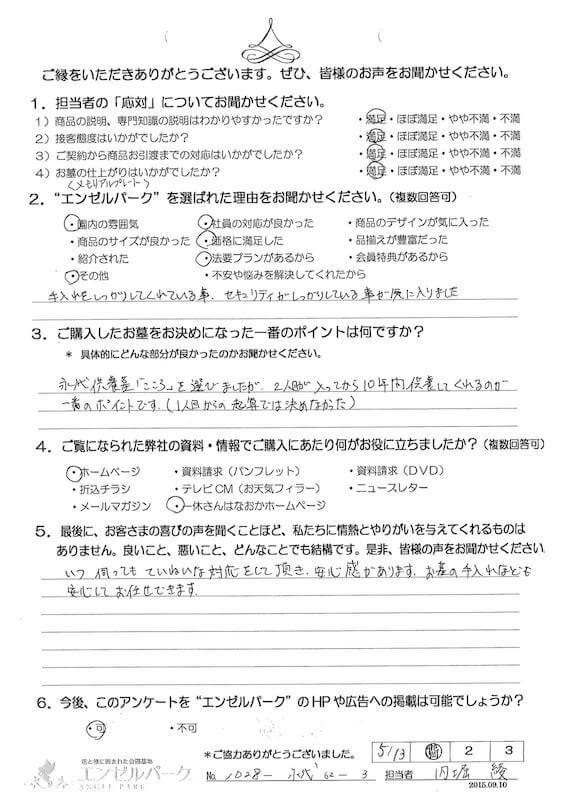 ご縁をいただきありがとうございます。ぜひ、皆様のお声をお聞かせください。
1．担当者の「応対」についてお聞かせください。
1）商品の説明、専門知識の説明はわかりやすかったですか？ ・満足・ほぼ満足・やや不満・不満
2）接客態度はいかがでしたか？ ・満足・ほぼ満足・やや不満・不満
3）ご契約から商品お引渡までの対応はいかがでしたか？ ・満足・ほぼ満足・やや不満・不満
4）お墓の仕上がりはいかがでしたか？ ・満足・ほぼ満足・やや不満・不満
(メモリアルプレート)
2．“エンゼルパーク”を選ばれた理由をお聞かせください。（複数回答可）
・園内の雰囲気 ・社員の対応が良かった ・商品のデザインが気に入った
・商品のサイズが良かった ・価格に満足した ・品揃えが豊富だった
・紹介された ・法要プランがあるから ・会員特典があるから
・その他 ・不安や悩みを解決してくれたから
手入れをしっかりしてくれている事、セキュリティがしっかりしている事が気に入りました
3．ご購入したお墓をお決めになった一番のポイントは何ですか？
＊ 具体的にどんな部分が良かったのかお聞かせください。
永代供養墓「こころ」を選びましたが、2人目が入ってから10年間供養してくれるのが
一番のポイントです。(1人目からの起算では決めなかった)
4．ご覧になられた弊社の資料・情報でご購入にあたり何がお役に立ちましたか？（複数回答可）
・ホームページ ・資料請求（パンフレット） ・資料請求（DVD）
・折込チラシ ・テレビCM（お天気フィラー） ・ニュースレター
・メールマガジン ・一休さんはなおかホームページ
5．最後に、お客さまの喜びの声を聞くことほど、私たちに情熱とやりがいを与えてくれるものは
ありません。良いこと、悪いこと、どんなことでも結構です。是非、皆様の声をお聞かせください
いつ伺ってもていねいな対応をして頂き、安心感があります。お墓の手入れなども
安心してお任せできます。
6．今後、このアンケートを“エンゼルパーク”のHPや広告への掲載は可能でしょうか？
・可 ・不可
＊ご協力ありがとうございました。 5/13 2 3
花と緑に囲まれた公園墓地
エンゼルパーク
ANGEL PARK
No. 1028-永代62-3 担当者 内堀 綾
2015.09.10